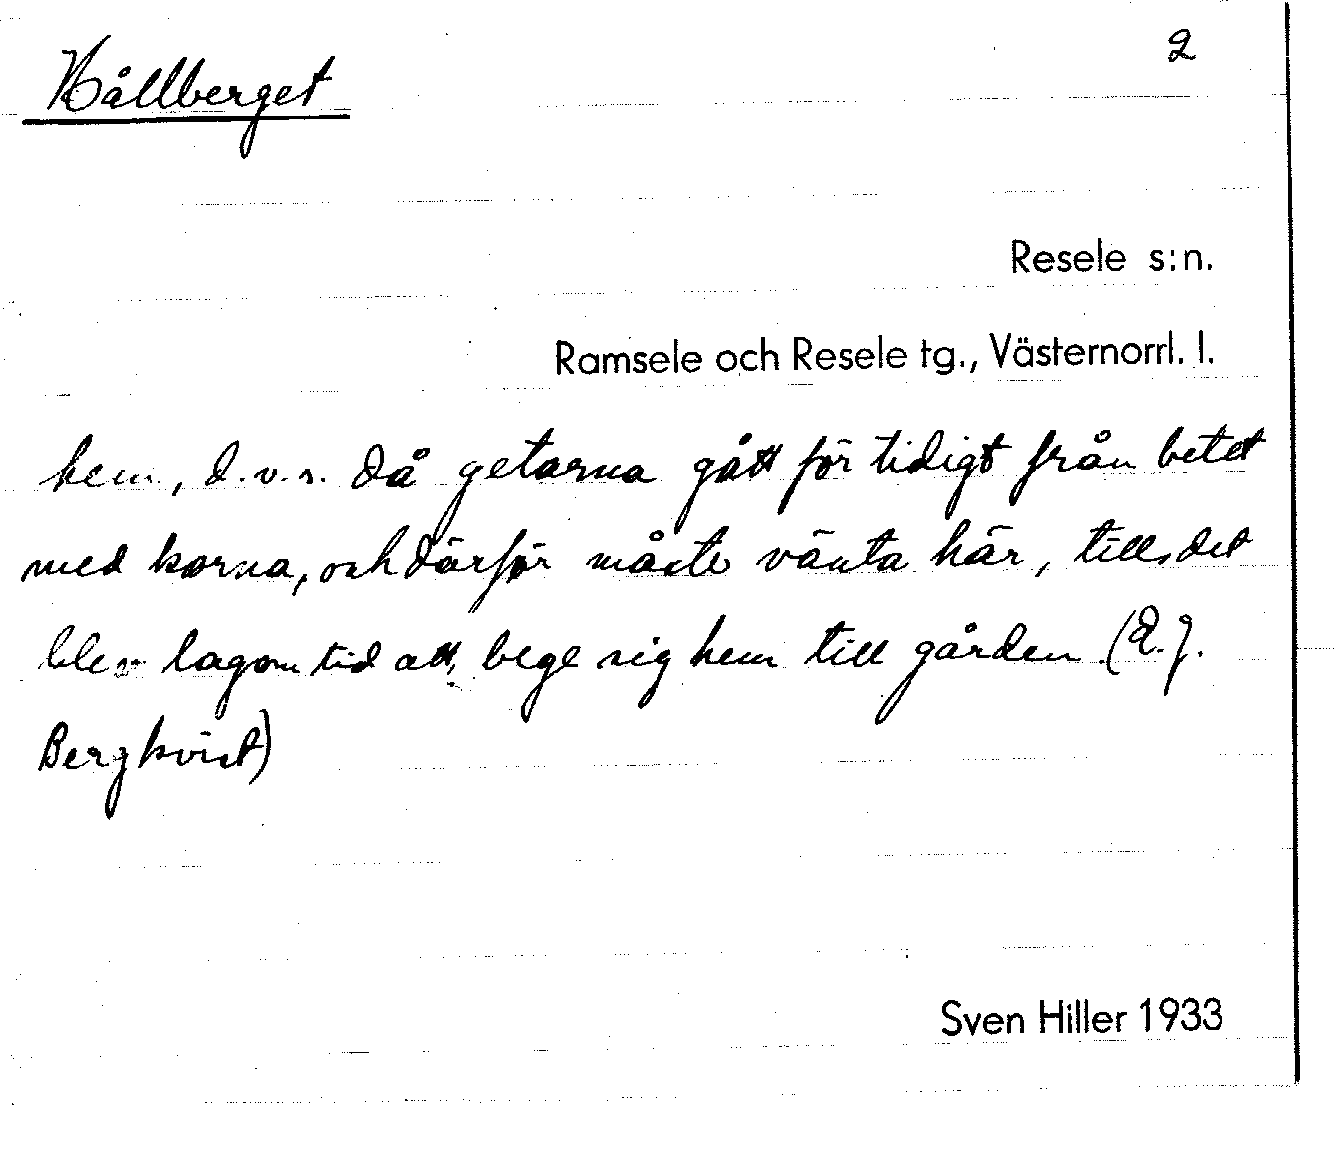 2
Hållberget
Resele s:n.
Ramsele och Resele tg., Västernorrl. l.
hem, d.v.s. då getarna gått för tidigt från betet
med korna, och därför måste vänta här, tills det
blev lagom tid att bege sig hem till gården. (E.J.
Bergkvist)
Sven Hiller 1933